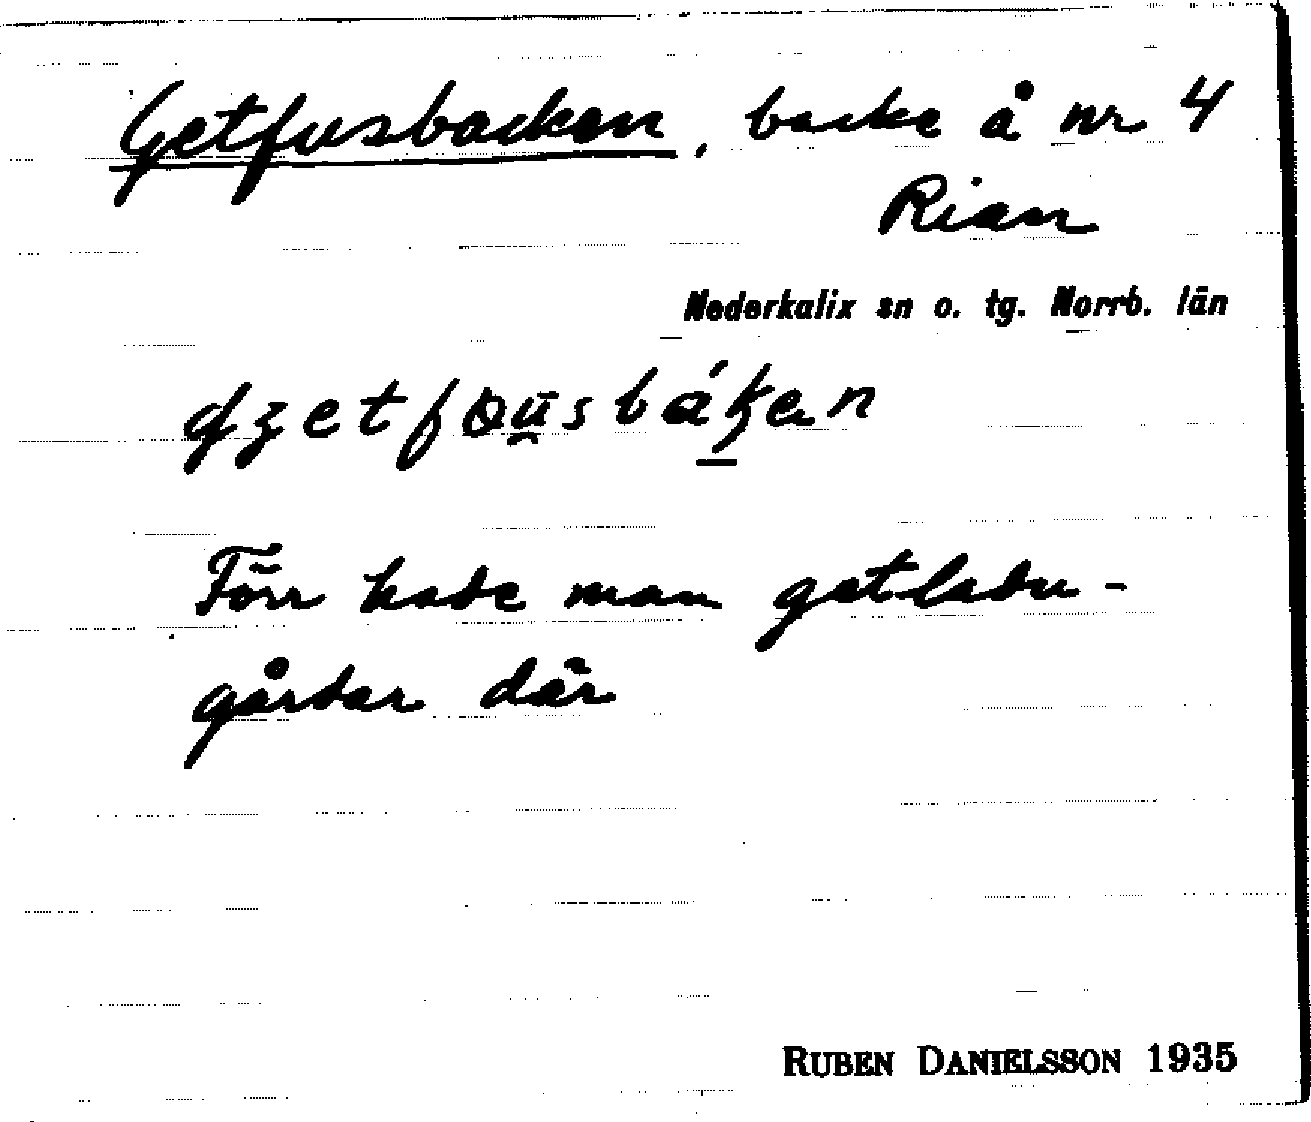 Getfusbacken, backe å nr 4
Rian
Nederkalix sn o. tg. Norrb. län
Förr hade man getladu-
gårdar där
RUBEN DANIELSSON 1935